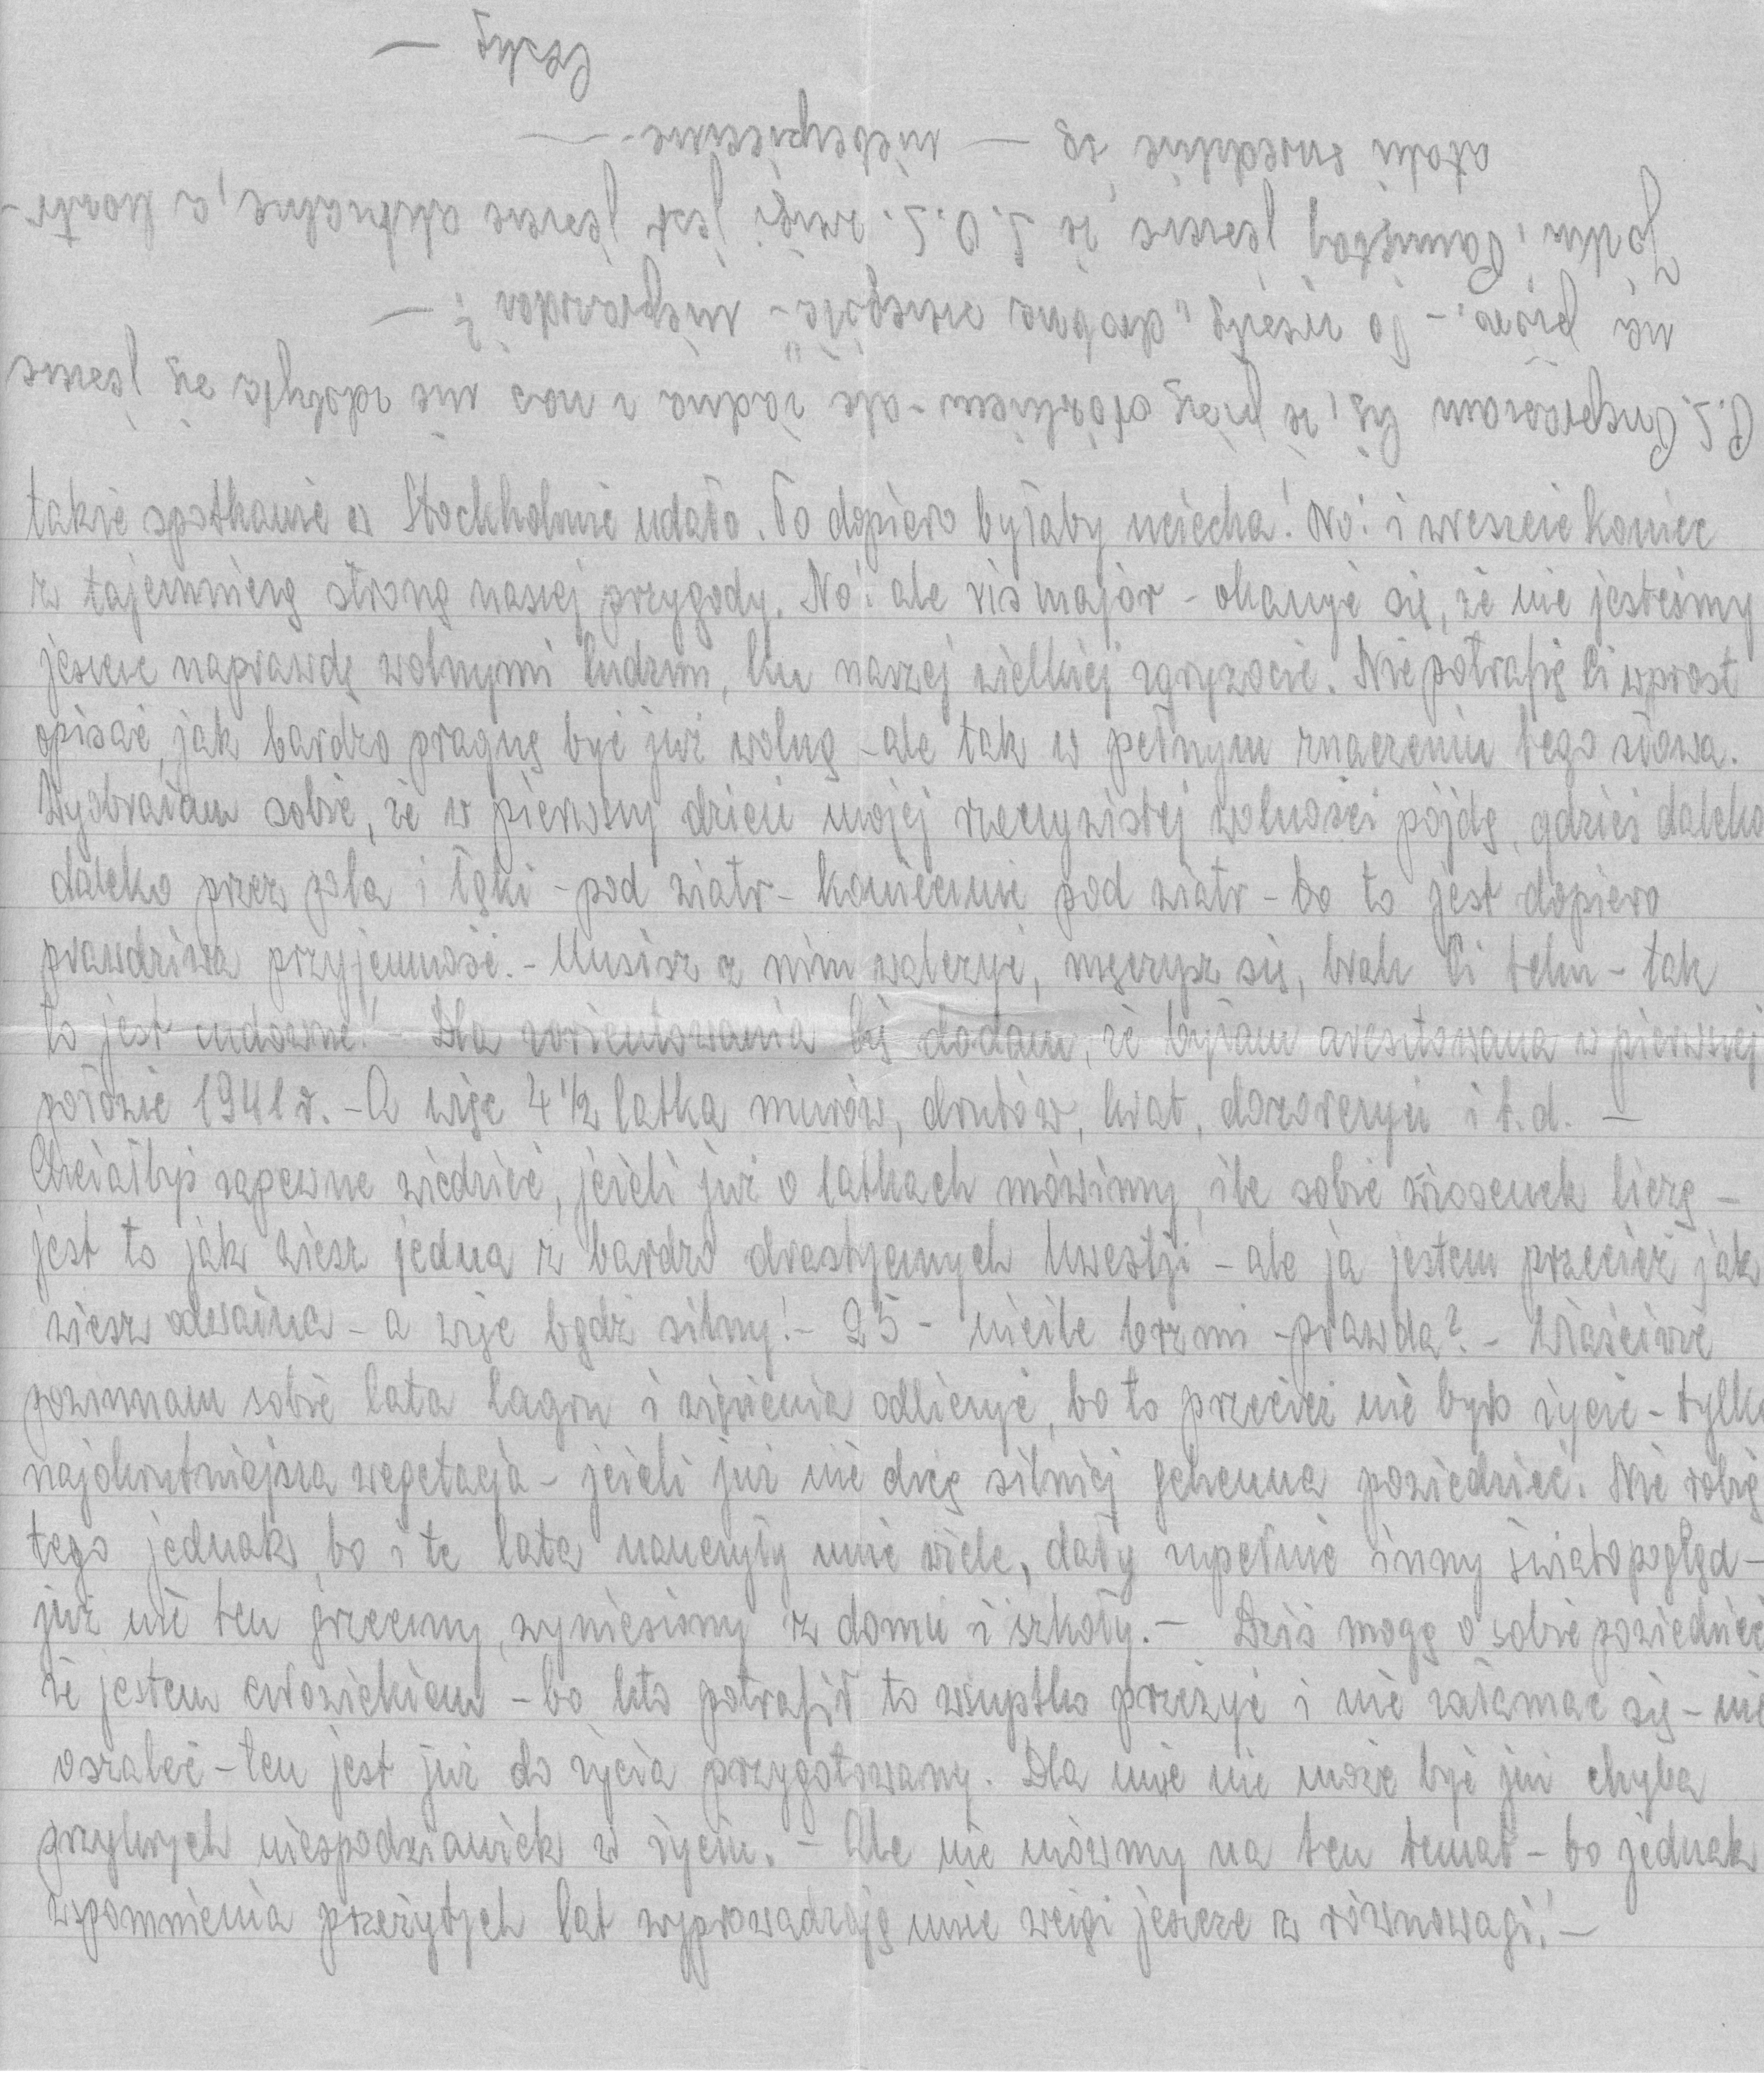 takie spotkanie w Stockholmie udało. To dopiero byłaby uciecha! No! i wreszcie koniec
z tajemniczą stroną naszej przygody. No! ale vis major - okazuje się, że nie jesteśmy
jeszcze naprawdę wolnymi ludźmi, ku naszej wielkiej zgryzocie. Nie potrafię Ci wprost
opisać, jak bardzo pragnę być już wolną - ale tak w pełnym znaczeniu tego słowa.
Wyobrażam sobie, że w pierwszy dzień mojej rzeczywistej wolności pójdę, gdzieś daleko
daleko przez pola i łąki - pod wiatr - koniecznie pod wiatr - bo to jest dopiero
prawdziwa przyjemność. - Musisz z nim walczyć, męczysz się, brak Ci tchu - tak
to jest cudowne! - Dla zorientowania Cię dodam, że byłam aresztowana w pierwszej
połowie 1941 r. - A więc 4 1/2 latka murów, drutów, krat, dozorczyń i t.d. -
Chciałbyś zapewne wiedzieć, jeżeli już o latkach mówimy, ile sobie wiosenek liczę -
jest to jak wiesz jedna z bardzo drastycznych kwestji - ale ja jestem przecież jak
wiesz odważna - a więc bądź silny! - 25 - nieźle brzmi - prawda? - Właściwie
powinnam sobie lata lagru i więzienia odliczyć, bo to przecież nie było życie - tylko
najokrutniejsza wegetacja - jeżeli już nie chcę silniej gehenna powiedzieć. Nie robię
tego jednak, bo i te lata nauczyły mnie wiele, dały zupełnie inny światopogląd -
już nie ten grzeczny, wyniesiony z domu i szkoły. - Dziś mogę o sobie powiedzieć
że jestem człowiekiem - bo kto potrafił to wszystko przeżyć i nie załamać się - nie
oszaleć - ten jest już do życia przygotowany. Dla mnie nie może być już chyba
przykrych niespodzianek w życiu. - Ale nie mówmy na ten temat - bo jednak
wspomnienia przeżytych lat wyprowadzają mnie wciąż jeszcze z równowagi! -
P.S. Przepraszam Cię, że piszę ołówkiem - ale żadna z nas nie zdobyła się jeszcze
na pióro. - To niestety „drobne
Jotku! Pamiętaj jeszcze, że S.O.S. mój jest jeszcze aktualny, a
są - niebezpieczne -